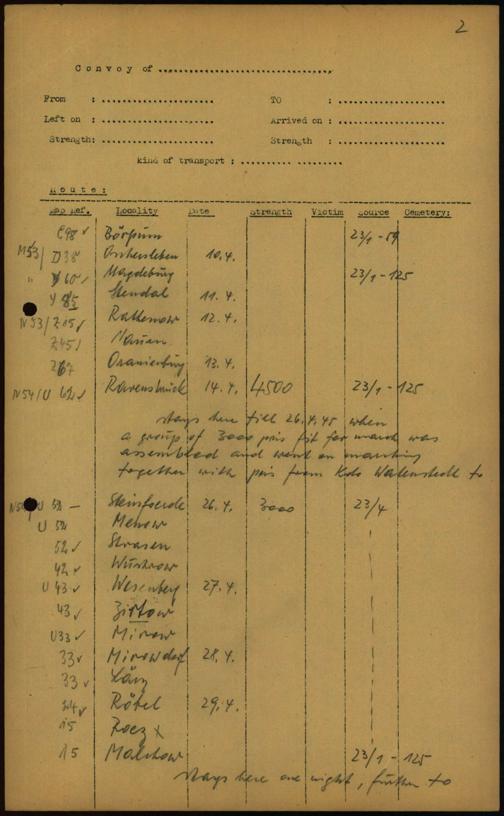 2
Convoy of ................................
From : .................... TO : ....................
Left on : .................... Arrived on : ....................
Strength: .................... Strength : ....................
kind of transport : ......... .........
Route:
Map Ref. Locality Date Strength Victim Source Cemetery:
C98 ✓ Börssum 23/1 - 59
M53/ D38 Aschersleben 10.4.
" Y60 ✓ Magdeburg 23/1 - 125
Y85 Stendal 11.4.
N53/Z15 ✓ Rathenow 12.4.
Z45 Nauen
Z67 Oranienburg 13.4.
N54/U 62 ✓ Ravensbrück 14.4. 4500 23/1 - 125
stays here till 26.4.45 when
a group of 3000 pris fit for march was
assembled and went on marching
together with pris from Kdo Watenstedt to
U 52 - Steinfoerde 26.4. 3000 23/4
U 52 Menow
52 ✓ Strasen
42 ✓ Wustrow
U 43 ✓ Wesenberg 27.4.
43 ✓ Zirtow
U33 ✓ Mirow
33 ✓ Mirowdorf 28.4.
33 ✓ Lärz
24 ✓ Röbel 29.4.
15 x
15 Malchow 23/1 - 125
stays here one night, further to